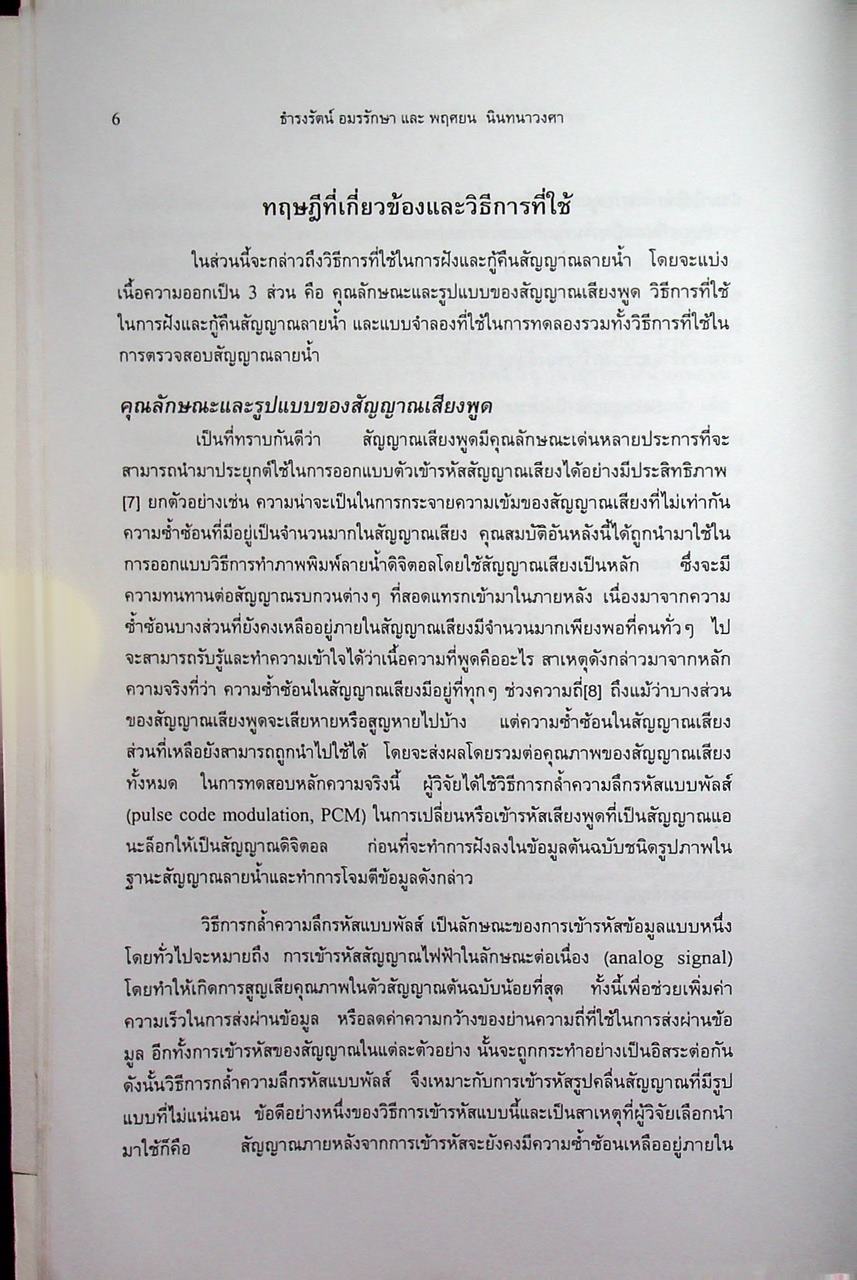 6 ธำรงรัตน์ อมรรักษา และ พฤศยน นินทนาวงศา
ทฤษฎีที่เกี่ยวข้องและวิธีการที่ใช้
ในส่วนนี้จะกล่าวถึงวิธีการที่ใช้ในการฝังและกู้คืนสัญญาณลายน้ำ โดยจะแบ่ง
เนื้อความออกเป็น 3 ส่วน คือ คุณลักษณะและรูปแบบของสัญญาณเสียงพูด วิธีการที่ใช้
ในการฝังและกู้คืนสัญญาณลายน้ำ และแบบจำลองที่ใช้ในการทดลองรวมทั้งวิธีการที่ใช้ใน
การตรวจสอบสัญญาณลายน้ำ
คุณลักษณะและรูปแบบของสัญญาณเสียงพูด
เป็นที่ทราบกันดีว่า สัญญาณเสียงพูดมีคุณลักษณะเด่นหลายประการที่จะ
สามารถนำมาประยุกต์ใช้ในการออกแบบตัวเข้ารหัสสัญญาณเสียงได้อย่างมีประสิทธิภาพ
[7] ยกตัวอย่างเช่น ความน่าจะเป็นในการกระจายความเข้มของสัญญาณเสียงที่ไม่เท่ากัน
ความซ้ำซ้อนที่มีอยู่เป็นจำนวนมากในสัญญาณเสียง คุณสมบัติอันหลังนี้ได้ถูกนำมาใช้ใน
การออกแบบวิธีการทำภาพพิมพ์ลายน้ำดิจิตอลโดยใช้สัญญาณเสียงเป็นหลัก ซึ่งจะมี
ความทนทานต่อสัญญาณรบกวนต่างๆ ที่สอดแทรกเข้ามาในภายหลัง เนื่องมาจากความ
ซ้ำซ้อนบางส่วนที่ยังคงเหลืออยู่ภายในสัญญาณเสียงมีจำนวนมากเพียงพอที่คนทั่วๆ ไป
จะสามารถรับรู้และทำความเข้าใจได้ว่าเนื้อความที่พูดคืออะไร สาเหตุดังกล่าวมาจากหลัก
ความจริงที่ว่า ความซ้ำซ้อนในสัญญาณเสียงมีอยู่ที่ทุกๆ ช่วงความถี่[8] ถึงแม้ว่าบางส่วน
ของสัญญาณเสียงพูดจะเสียหายหรือสูญหายไปบ้าง แต่ความซ้ำซ้อนในสัญญาณเสียง
ส่วนที่เหลือยังสามารถถูกนำไปใช้ได้ โดยจะส่งผลโดยรวมต่อคุณภาพของสัญญาณเสียง
ทั้งหมด ในการทดสอบหลักความจริงนี้ ผู้วิจัยได้ใช้วิธีการกล้ำความลึกรหัสแบบพัลส์
(pulse code modulation, PCM) ในการเปลี่ยนหรือเข้ารหัสเสียงพูดที่เป็นสัญญาณแอ
นะล็อกให้เป็นสัญญาณดิจิตอล ก่อนที่จะทำการฝังลงในข้อมูลต้นฉบับชนิดรูปภาพใน
ฐานะสัญญาณลายน้ำและทำการโจมตีข้อมูลดังกล่าว
วิธีการกล้ำความลึกรหัสแบบพัลส์ เป็นลักษณะของการเข้ารหัสข้อมูลแบบหนึ่ง
โดยทั่วไปจะหมายถึง การเข้ารหัสสัญญาณไฟฟ้าในลักษณะต่อเนื่อง (analog signal)
โดยทำให้เกิดการสูญเสียคุณภาพในตัวสัญญาณต้นฉบับน้อยที่สุด ทั้งนี้เพื่อช่วยเพิ่มค่า
ความเร็วในการส่งผ่านข้อมูล หรือลดค่าความกว้างของย่านความถี่ที่ใช้ในการส่งผ่านข้อ
มูล อีกทั้งการเข้ารหัสของสัญญาณในแต่ละตัวอย่าง นั้นจะถูกกระทำอย่างเป็นอิสระต่อกัน
ดังนั้นวิธีการกล้ำความลึกรหัสแบบพัลส์ จึงเหมาะกับการเข้ารหัสรูปคลื่นสัญญาณที่มีรูป
แบบที่ไม่แน่นอน ข้อดีอย่างหนึ่งของวิธีการเข้ารหัสแบบนี้และเป็นสาเหตุที่ผู้วิจัยเลือกนำ
มาใช้ก็คือ สัญญาณภายหลังจากการเข้ารหัสจะยังคงมีความซ้ำซ้อนเหลืออยู่ภายใน